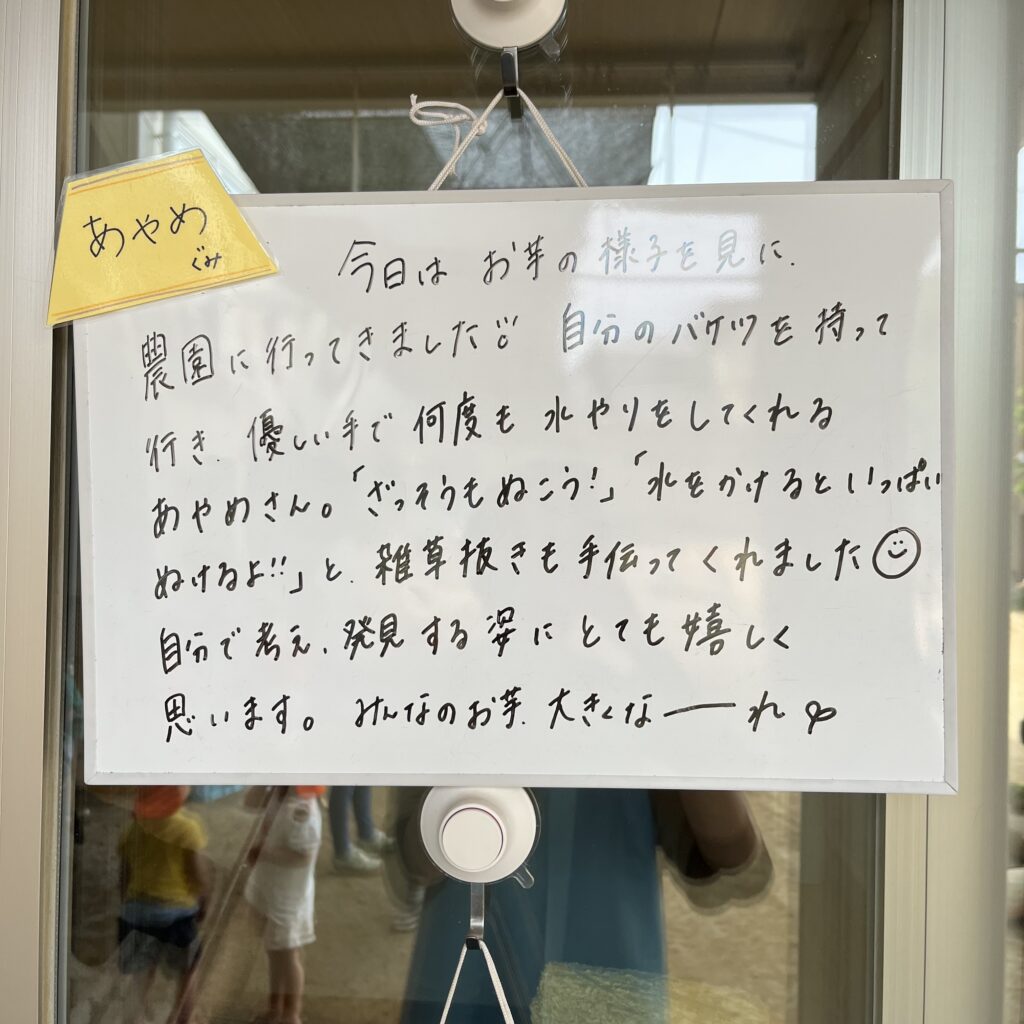 あやめ
ぐみ
今日は お芋の様子を見に、
農園に行ってきました 自分のバケツを持って
行き、優しい手で何度も水やりをしてくれる
あやめさん。「ざっそうもぬこう!」「水をかけるといっぱい
ぬけるよ!!」と、雑草抜きも手伝ってくれました
自分で考え、発見する姿にとても嬉しく
思います。 みんなのお芋、大きくなーれ